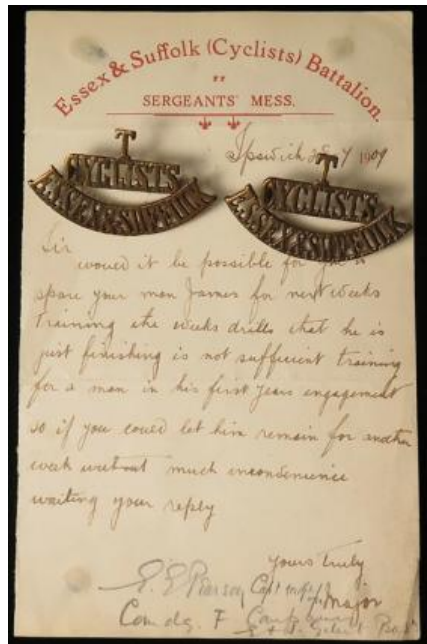 Essex & Suffolk (Cyclists) Battalion.
SERGEANTS' MESS.
Ipswich 1909
T
CYCLISTS
ESSEX & SUFFOLK
T
CYCLISTS
ESSEX & SUFFOLK
Sir
woued it be possible for you
spare your man James for next weeks
training the weeks drills that he is
just finishing is not sufficient training
for a man in his first years engagement
so if you coued let him remain for another
week without much incondenience
waiting your reply
yours truly
E. E Pearson Capt Major
Comdg. F Company